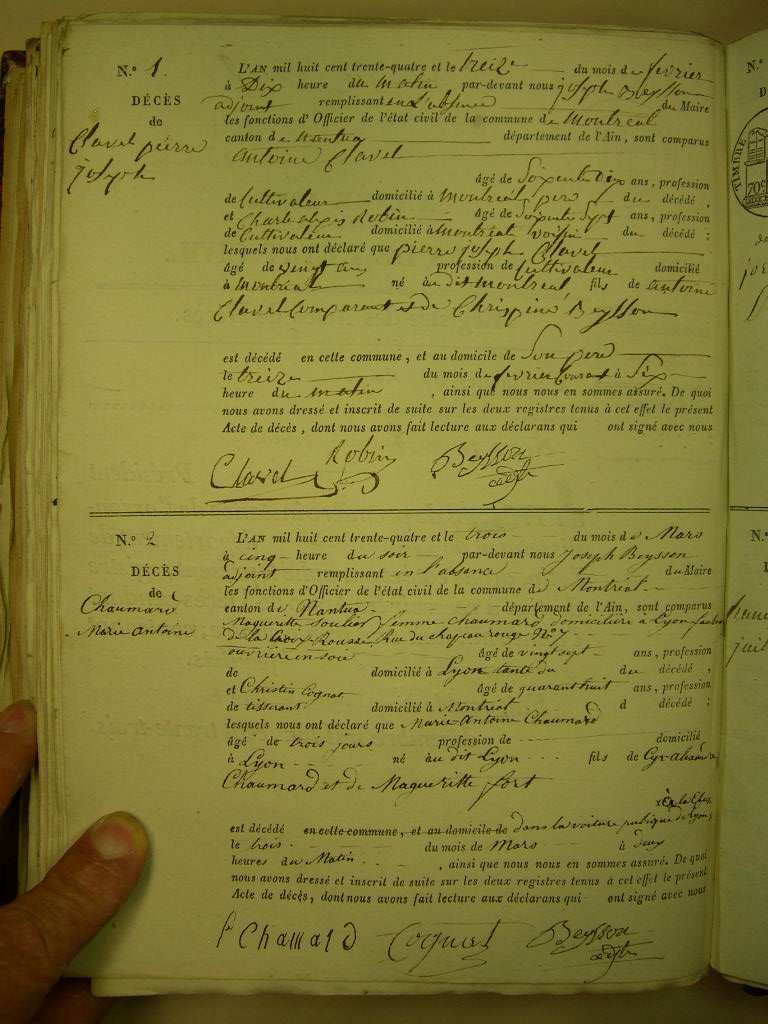 N.º 1.
DÉCÈS
de
Clavel pierre
joseph
L'AN mil huit cent trente-quatre et le treize du mois de fevrier
à Dix heure du matin par-devant nous joseph Beysson
adjoint remplissant en l'absence du Maire
les fonctions d'Officier de l'état civil de la commune de Montreal
canton de Nantua département de l'Ain, sont comparus
antoine Clavel
âgé de Soixente Dix ans, profession
de Cultivateur domicilié à Montreal pere du décédé,
et Charle alexis Robin âgé de Soixente Sept ans, profession
de Cultivateur domicilié à Montreal voisin du décédé;
lesquels nous ont déclaré que pierre joseph Clavel
âgé de vingt ans profession de Cultivateur domicilié
à Montreal né au dit Montreal fils de antoine
Clavel Comparant et de Chrispine Beysson
est décédé en cette commune, et au domicile de Son pere
le treize du mois de fevrier Courant à Six
heure du matin, ainsi que nous nous en sommes assuré. De quoi
nous avons dressé et inscrit de suite sur les deux registres tenus à cet effet le présent
Acte de décès, dont nous avons fait lecture aux déclarans qui ont signé avec nous
Clavel Robin Beysson
adjt
N.º 2
DÉCÈS
de
Chaumard
Marie Antoine
L'AN mil huit cent trente-quatre et le trois du mois de Mars
à cinq heure du soir par-devant nous Joseph Beysson
adjoint remplissant en l'absance du Maire
les fonctions d'Officier de l'état civil de la commune de Montréal
canton de Nantua département de l'Ain, sont comparus
Maguerette soulier femme Chaumard, domiciliée à Lyon
de la Croix-Rousse Rue du chapeau rouge Nº 7
ouvrière en soie âgé de vingt sept ans, profession
de domicilié à Lyon tante du du décédé,
et Christin Cognat âgé de quarant huit ans, profession
de tisserant domicilié à Montréal d décédé;
lesquels nous ont déclaré que Marie Antoine Chaumard
âgé de trois jours profession de domicilié
à Lyon né au dit Lyon fils de
Chaumard et de Magueritte fort
est décédé en cette commune, et au domicile de dans la voiture publique de Lyon,
le trois du mois de Mars à deux
heures du Matin, ainsi que nous nous en sommes assuré. De quoi
nous avons dressé et inscrit de suite sur les deux registres tenus à cet effet le présent
Acte de décès, dont nous avons fait lecture aux déclarans qui ont signé avec nous
fe Chamard Cognat Beysson
adjt
TIMBRE